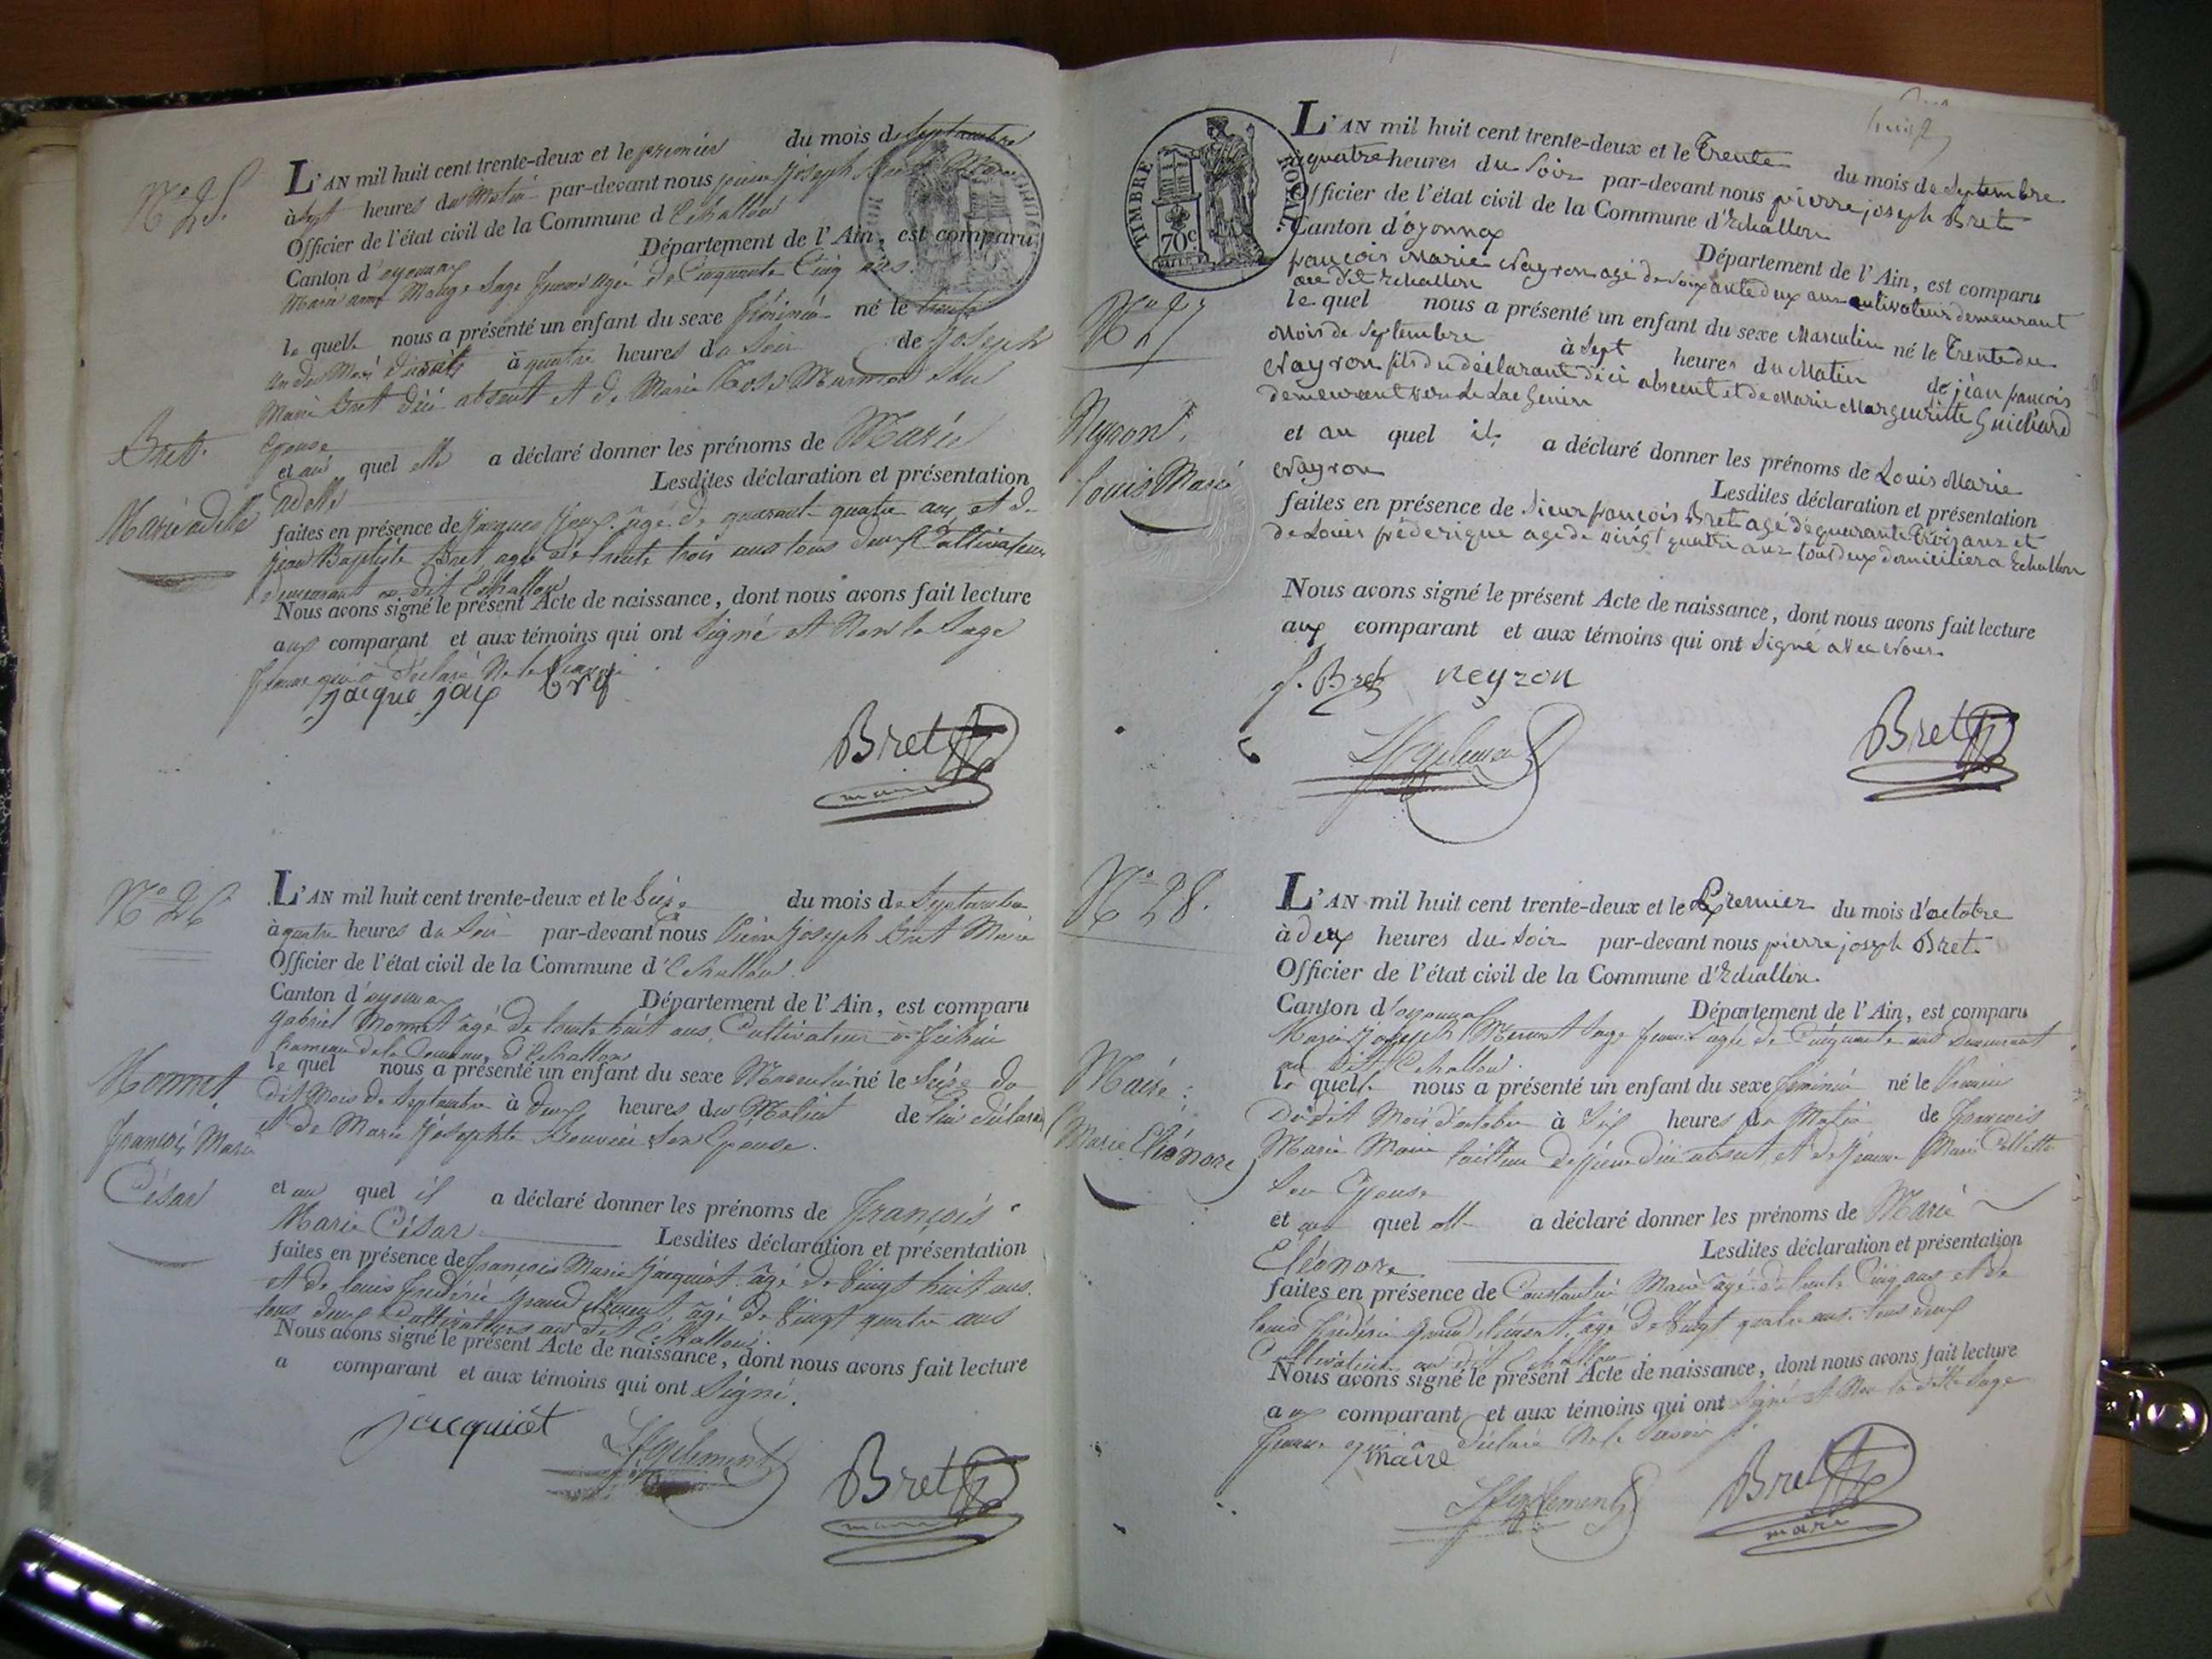 N.° 25.
L'AN mil huit cent trente-deux et le premier du mois de Septembre
à Sept heures du Matin par-devant nous pierre Joseph Bret Maire
Officier de l'état civil de la Commune d'Echallon
Canton d'oyonnax Département de l'Ain, est comparu
Marie anne Monge Sage femme agée de Cinquante Cinq ans.
la quelle nous a présenté un enfant du sexe féminin né le trente
un du Mois d'août à quatre heures du Soir de Joseph
Marie Bret d'ici absent et de Marie Rose Son
Epouse
Bret.
et au quel elle a déclaré donner les prénoms de Marie
adelle Lesdites déclaration et présentation
Marie adelle
faites en présence de Jacques Joux âgé de quarante quatre ans et de
jean Baptiste Bret agé de trente trois ans tous deux Cultivateurs
demeurant au dit Echallon
Nous avons signé le présent Acte de naissance, dont nous avons fait lecture
aux comparant et aux témoins qui ont Signé et Non la Sage
femme qui a déclaré Ne le Savoir
jacque joux Bret
Bret
maire
N.° 26
L'AN mil huit cent trente-deux et le Seize du mois de Septembre
à quatre heures du Soir par-devant nous Pierre Joseph Bret Maire
Officier de l'état civil de la Commune d'Echallon.
Canton d'oyonnax Département de l'Ain, est comparu
gabriel Monnet âgé de trente huit ans, Cultivateur à
hameau de la Commune d'Echallon
le quel nous a présenté un enfant du sexe Masculin né le Seize du
dit Mois de Septembre à deux heures du Matin de lui déclarant
et de Marie Josephte Bouvier Son Epouse.
Monnet
François Marie
César
et au quel il a déclaré donner les prénoms de François
Marie César Lesdites déclaration et présentation
faites en présence de François Marie Jacquiot âgé de Vingt huit ans.
et de louis frédéric grand clément âgé de Vingt quatre ans
tous deux Cultivateurs au dit Echallon.
Nous avons signé le présent Acte de naissance, dont nous avons fait lecture
a comparant et aux témoins qui ont Signé.
jacquiot
LfgClement
Bret
maire
TIMBRE ROYAL.
70c
L'AN mil huit cent trente-deux et le Trente du mois de Septembre
à quatre heures du Soir par-devant nous pierre joseph Bret
Officier de l'état civil de la Commune d'Echallon
Canton d'oyonnax Département de l'Ain, est comparu
françois Marie Nayron agé de Soixante deux ans cultivateur demeurant
au dit Echallon
N.° 27
le quel nous a présenté un enfant du sexe Masculin né le Trente du
Mois de Septembre à Sept heures du Matin de jean françois
Nayron fils du déclarant d'ici absent et de Marie Margueritte Guichard
demeurant vers le Lac Genin
Neyron.
et au quel il a déclaré donner les prénoms de Louis Marie
Nayron Lesdites déclaration et présentation
Louis Marie
faites en présence de Sieur françois Bret agé de quarante Trois ans et
de Louis fréderique agé de vingt quatre ans tous deux domicilier a Echallon
Nous avons signé le présent Acte de naissance, dont nous avons fait lecture
aux comparant et aux témoins qui ont Signé avec Nous.
f. Bret neyron
LfgClement
Bret
N.° 28.
L'AN mil huit cent trente-deux et le Premier du mois d'octobre
à deux heures du Soir par-devant nous pierre joseph Bret
Officier de l'état civil de la Commune d'Echallon.
Canton d'oyonnax Département de l'Ain, est comparu
Marie Joseph Sage femme agée de Cinquante ans Demeurant
au dit Echallon.
la quelle nous a présenté un enfant du sexe féminin né le Premier
Du dit Mois d'octobre à Six heures du Matin de François
Marie Maire tailleur de pierre d'ici absent, et de Jeanne Marie
Son Epouse
Maire.
Marie Eléonore
et au quel elle a déclaré donner les prénoms de Marie
Eléonore Lesdites déclaration et présentation
faites en présence de Constantin Maire âgé de trente Cinq ans et de
louis frédéric grand clément, âgé de Vingt quatre ans. tous deux
Cultivateurs au dit Echallon
Nous avons signé le présent Acte de naissance, dont nous avons fait lecture
aux comparant et aux témoins qui ont Signé et Non la dite Sage
femme qui a déclaré Ne le Savoir
maire
LfgClement
Bret
maire